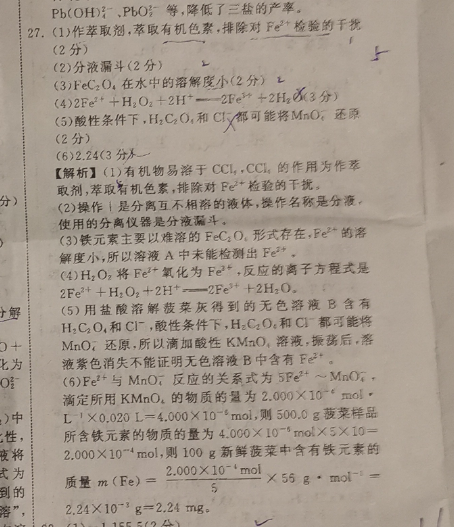 Pb(OH)₄²⁻、PbO₂²⁻等,降低了三盐的产率。
27. (1)作萃取剂,萃取有机色素,排除对Fe²⁺检验的干扰
(2分)
(2)分液漏斗(2分)
(3)FeC₂O₄在水中的溶解度小(2分)
(4)2Fe²⁺+H₂O₂+2H⁺══2Fe³⁺+2H₂O(3分)
(5)酸性条件下,H₂C₂O₄和Cl⁻都可能将MnO₄⁻还原
(2分)
(6)2.24(3分)
【解析】(1)有机物易溶于CCl₄,CCl₄的作用为作萃
取剂,萃取有机色素,排除对Fe²⁺检验的干扰。
(2)操作Ⅰ是分离互不相溶的液体,操作名称是分液,
使用的分离仪器是分液漏斗。
(3)铁元素主要以难溶的FeC₂O₄形式存在,Fe²⁺的溶
解度小,所以溶液A中未能检测出Fe²⁺。
(4)H₂O₂将Fe²⁺氧化为Fe³⁺,反应的离子方程式是
2Fe²⁺+H₂O₂+2H⁺══2Fe³⁺+2H₂O。
(5)用盐酸溶解菠菜灰得到的无色溶液B含有
H₂C₂O₄和Cl⁻,酸性条件下,H₂C₂O₄和Cl⁻都可能将
MnO₄⁻还原,所以滴加酸性KMnO₄溶液,振荡后,溶
液紫色消失不能证明无色溶液B中含有Fe²⁺。
(6)Fe²⁺与MnO₄⁻反应的关系式为5Fe²⁺~MnO₄⁻,
滴定所用KMnO₄的物质的量为2.000×10⁻⁴ mol·
L⁻¹×0.020 L=4.000×10⁻⁶mol,则500.0 g菠菜样品
所含铁元素的物质的量为4.000×10⁻⁶mol×5×10=
2.000×10⁻⁴mol,则100 g新鲜菠菜中含有铁元素的
质量m(Fe)=2.000×10⁻⁴mol/5×56 g·mol⁻¹=
2.24×10⁻³ g=2.24 mg。